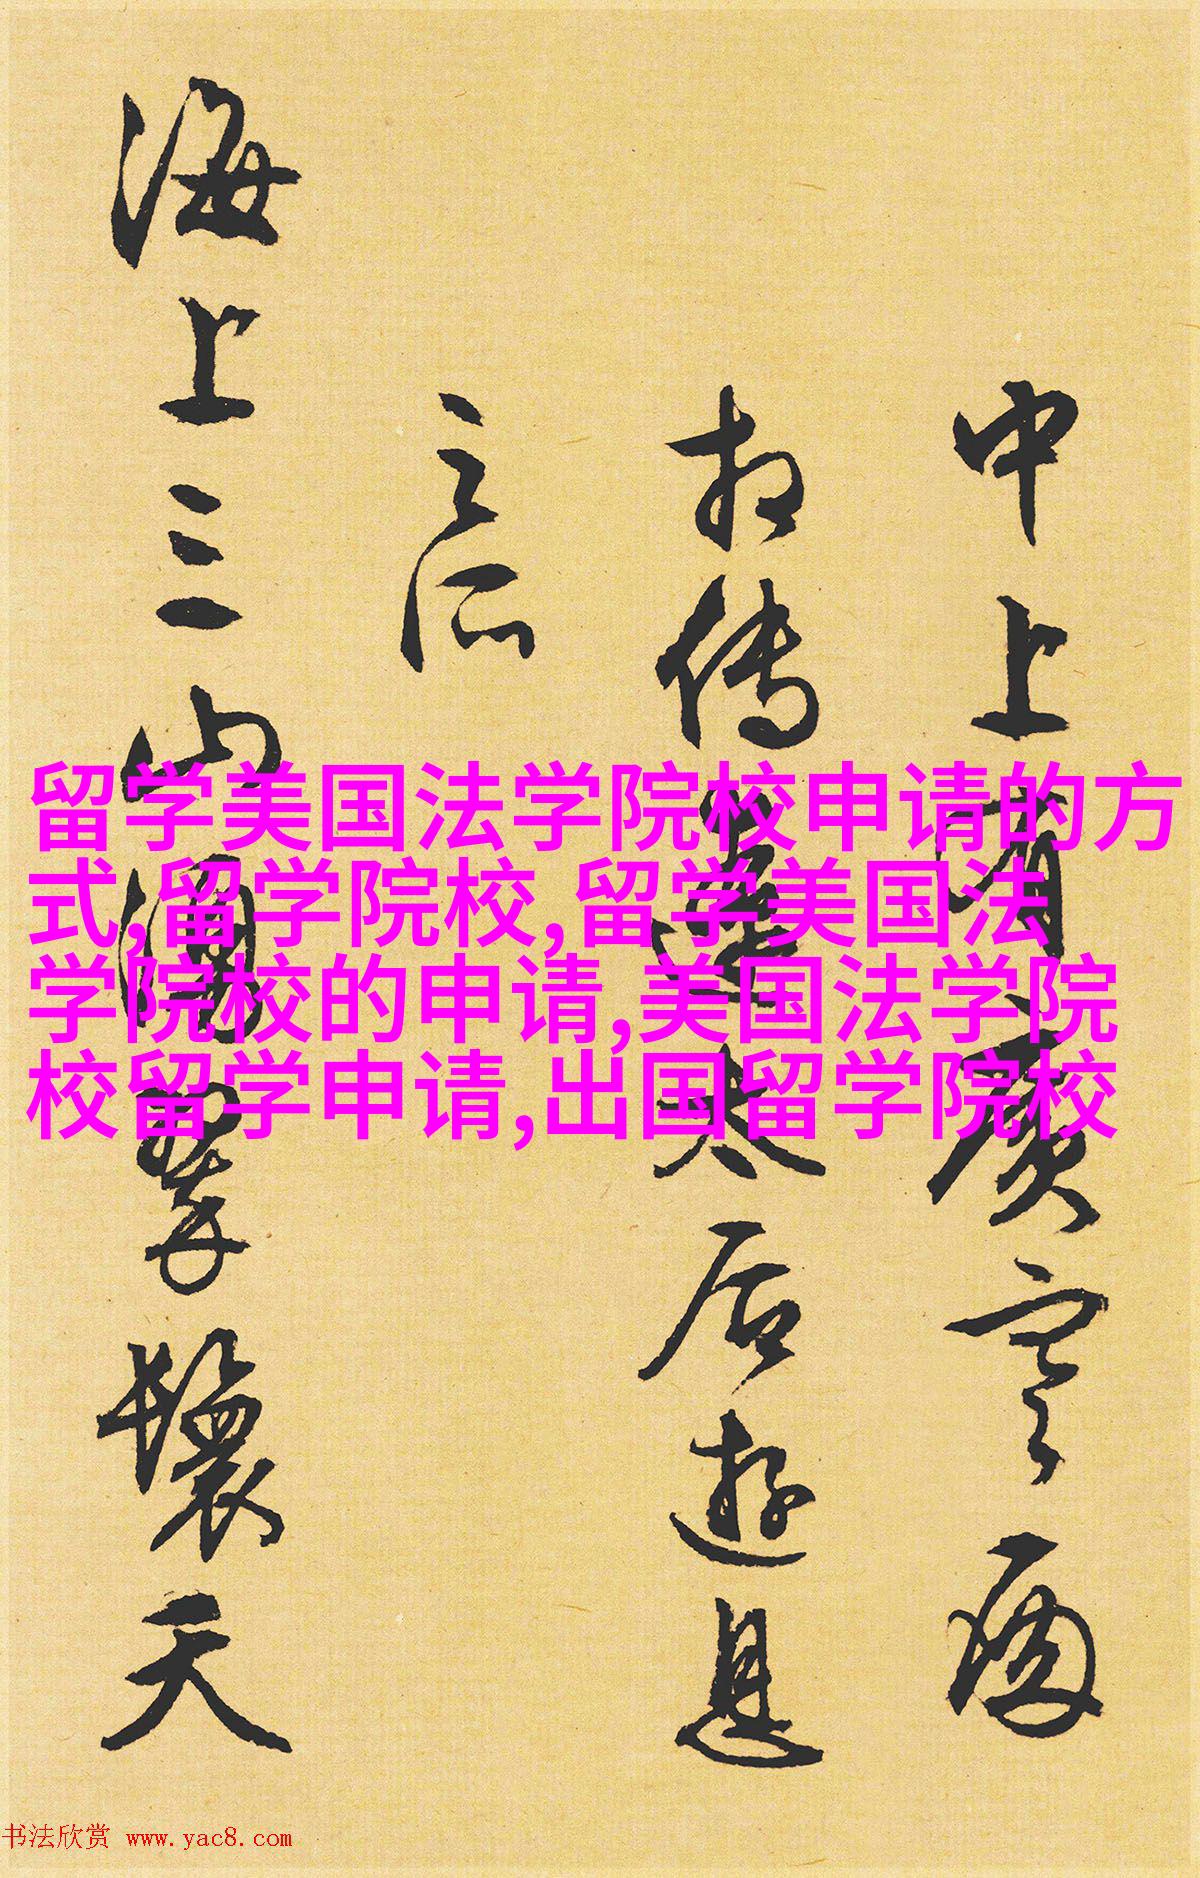 留学美国法学院校申请的方
式,留学院校,留学美国法
学院校的申请,美国法学院
校留学申请,出国留学院校
中上有廣寒
相傳遼太后遊息
之所
海上三山翠鬟天
书法欣赏 www.yac8.com